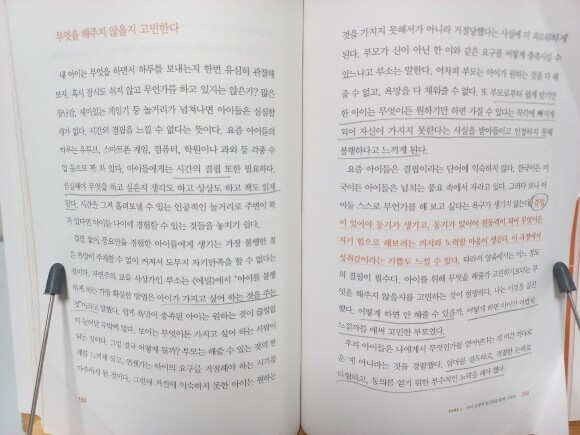 무엇을 해주지 않을지 고민한다
내 아이는 무엇을 하면서 하루를 보내는지 한번 유심히 관찰해
보자. 혹시 잠시도 쉬지 않고 무언가를 하고 있지는 않은가? 많은
장난감, 재미있는 게임기 등 놀거리가 넘쳐나면 아이들은 심심할
새가 없다. 시간의 결핍을 느낄 수 없다는 뜻이다. 요즘 아이들의
하루는 유튜브, 스마트폰 게임, 컴퓨터, 학원이나 과외 등 각종 수
업 등으로 꽉 차 있다. 아이들에게는 시간의 결핍 또한 필요하다.
심심해야 무엇을 하고 싶은지 생각도 하고 상상도 하고 책도 읽게
된다. 시간을 그저 흘려보낼 수 있는 인공적인 놀거리로 주변이 꽉
차 있다면 아이들 나이에 경험할 수 있는 것들을 놓치기 쉽다.
결핍 없이 풍요만을 경험한 아이들에게 생기는 가장 불행한 점
은 욕망이 주체할 수 없이 커져서 도무지 자기만족을 할 수 없다는
것이다. 자연주의 교육 사상가인 루소는 《에밀》에서 "아이를 불행
하게 하는 가장 확실한 방법은 아이가 가지고 싶어 하는 것을 주는
것"이라고 말했다. 쉽게 욕망이 충족된 아이는 원하는 것이 끊임없
이 늘어난 수밖에 없다. 보이는 무엇이든 가지고 싶어 하는 사람이
되는 것이다. 그럼 결국 어떻게 될까? 부모는 해줄 수 있는 것의 한
계를 느끼게 되고, 언젠가는 아이의 요구를 거절해야 하는 시기를
마주하게 된 것이다. 그런데 거절에 익숙하지 못한 아이는 원하는
것을 가지지 못해서가 아니라 거절당했다는 사실에 더 괴로워하게
된다. 부모가 신이 아닌 한 이와 같은 요구를 어떻게 충족시킬 수
있느냐고 루소는 말한다. 어차피 부모는 아이가 원하는 것을 다 해
줄 수 없고, 욕망을 다 채워줄 수 없다. 또 부모로부터 쉽게 받기만
한 아이는 무엇이든 원하기만 하면 가질 수 있다는 착각에 빠지게
되어 자신이 가지지 못한다는 사실을 받아들이고 인정하지 못해
불행하다고 느끼게 된다.
요즘 아이들은 결핍이라는 단어에 익숙하지 않다. 한국이든 미
국이든 아이들은 넘치는 풍요 속에서 자라고 있다. 그러다 보니 아
이들 스스로 무언가를 해 보고 싶다는 욕구가 생기질 않는다. 결핍
이 있어야 동기가 생기고, 동기가 있어야 원동력이 되어 무엇이든
자기 힘으로 해보려는 의지와 노력할 마음이 생긴다. 이 과정에서
성취감이라는 기쁨도 느낄 수 있다. 따라서 양육에서는 어느 정도
의 결핍이 필수다. 아이를 위해 무엇을 해줄까 고민하기보다는 무
엇을 해주지 않을지를 고민하는 것이 현명하다. 나는 이것을 실천
어떻게 하면 안 해줄 수 있을까, 어떻게 하면 아이가 어렵게
느낄까를 애써 고민한 부모였다.
우리 아이들은 나에게서 무엇인가를 얻어낸다는 게 여간 까다로
운 게 아니라는 것을 경험했다. 엄마를 설득하고, 적절한 논리로
타협하고, 동의를 얻기 위한 부수적인 노력을 해야 했다.